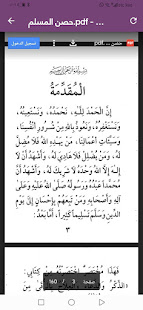 حصن المسلم.pdf - ...
تسجيل الدخول
بسم الله الرحمن الرحيم
المُقَدِّمَةُ
إِنَّ الْحَمْدَ لِلَّهِ، نَحْمَدُهُ، وَنَسْتَعِينُهُ،
وَنَسْتَغْفِرُهُ، وَنَعُوذُ بِاللَّهِ مِنْ شُرُورِ أَنْفُسِنَا،
وَسَيِّئَاتِ أَعْمَالِنَا، مَنْ يَهْدِهِ اللَّهُ فَلاَ مُضِلَّ
لَهُ، وَمَنْ يُضْلِلْ فَلاَ هَادِيَ لَهُ، وَأَشْهَدُ أَنْ
لاَ إِلَهَ إِلاَّ اللَّهُ وَحْدَهُ لاَ شَرِيكَ لَهُ، وَأَشْهَدُ أَنَّ
مُحَمَّداً عَبْدُهُ وَرَسُولُهُ صَلَّى اللَّهُ عَلَيْهِ وَعَلَى
آلِهِ وَأَصْحَابِهِ وَمَنْ تَبِعَهُمْ بِإِحْسَانٍ إِلَى يَوْمِ
الدِّينِ وَسَلَّمَ تَسْلِيماً كَثِيراً، أَمَّا بَعْدُ:
٣
فَهَذَا مُخْتَصَرٌ اخْتَصَرْتُهُ مِنْ كِتَابِي:
صفحة 3 / 160